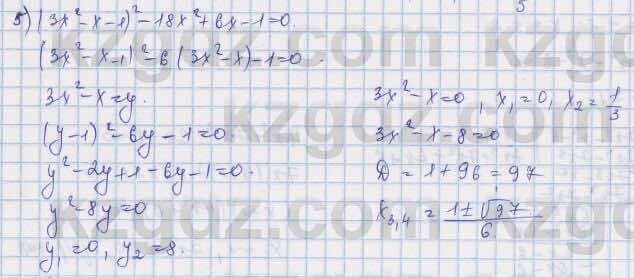 5
5) (3x²-x-1)²-18x²+6x-1=0.
(3x²-x-1)²-6(3x²-x)-1=0.
3x²-x=y.
(y-1)²-6y-1=0.
y²-2y+1-6y-1=0.
y²-8y=0
y₁=0, y₂=8.
3x²-x=0, x₁=0, x₂=1/3
3x²-x-8=0
D=1+96=97
x₃,₄=(1±√97)/6
kzgdz.com